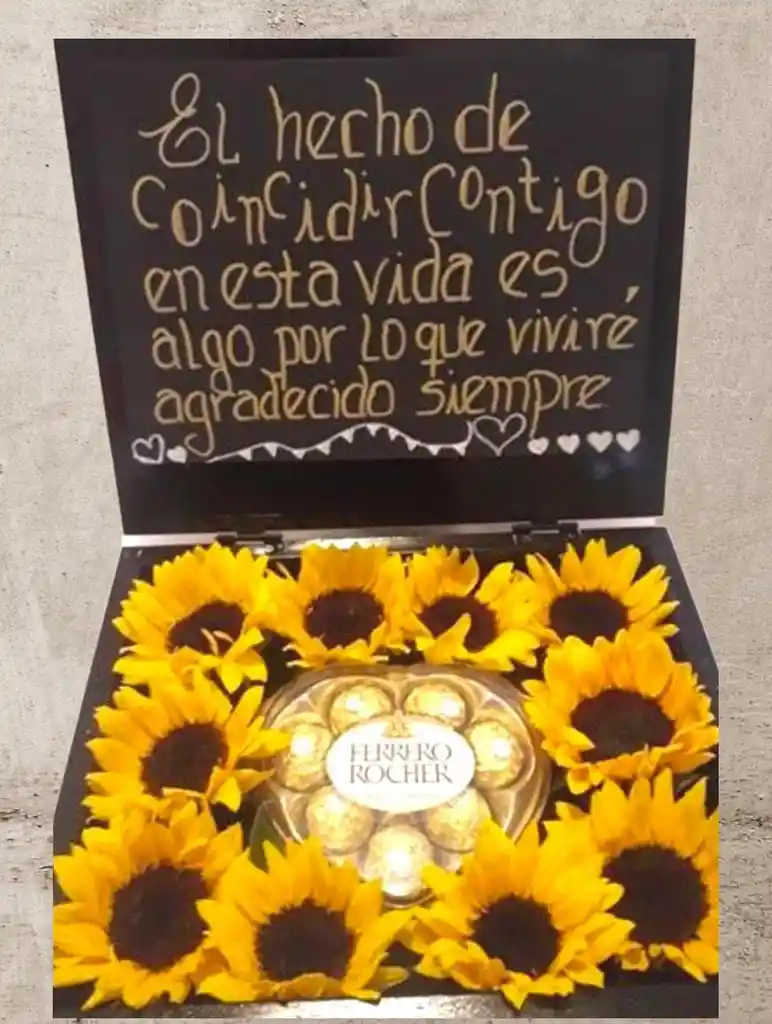 El hecho de
coincidir contigo
en esta vida es
algo por lo que viviré
agradecido siempre
FERRERO
ROCHER